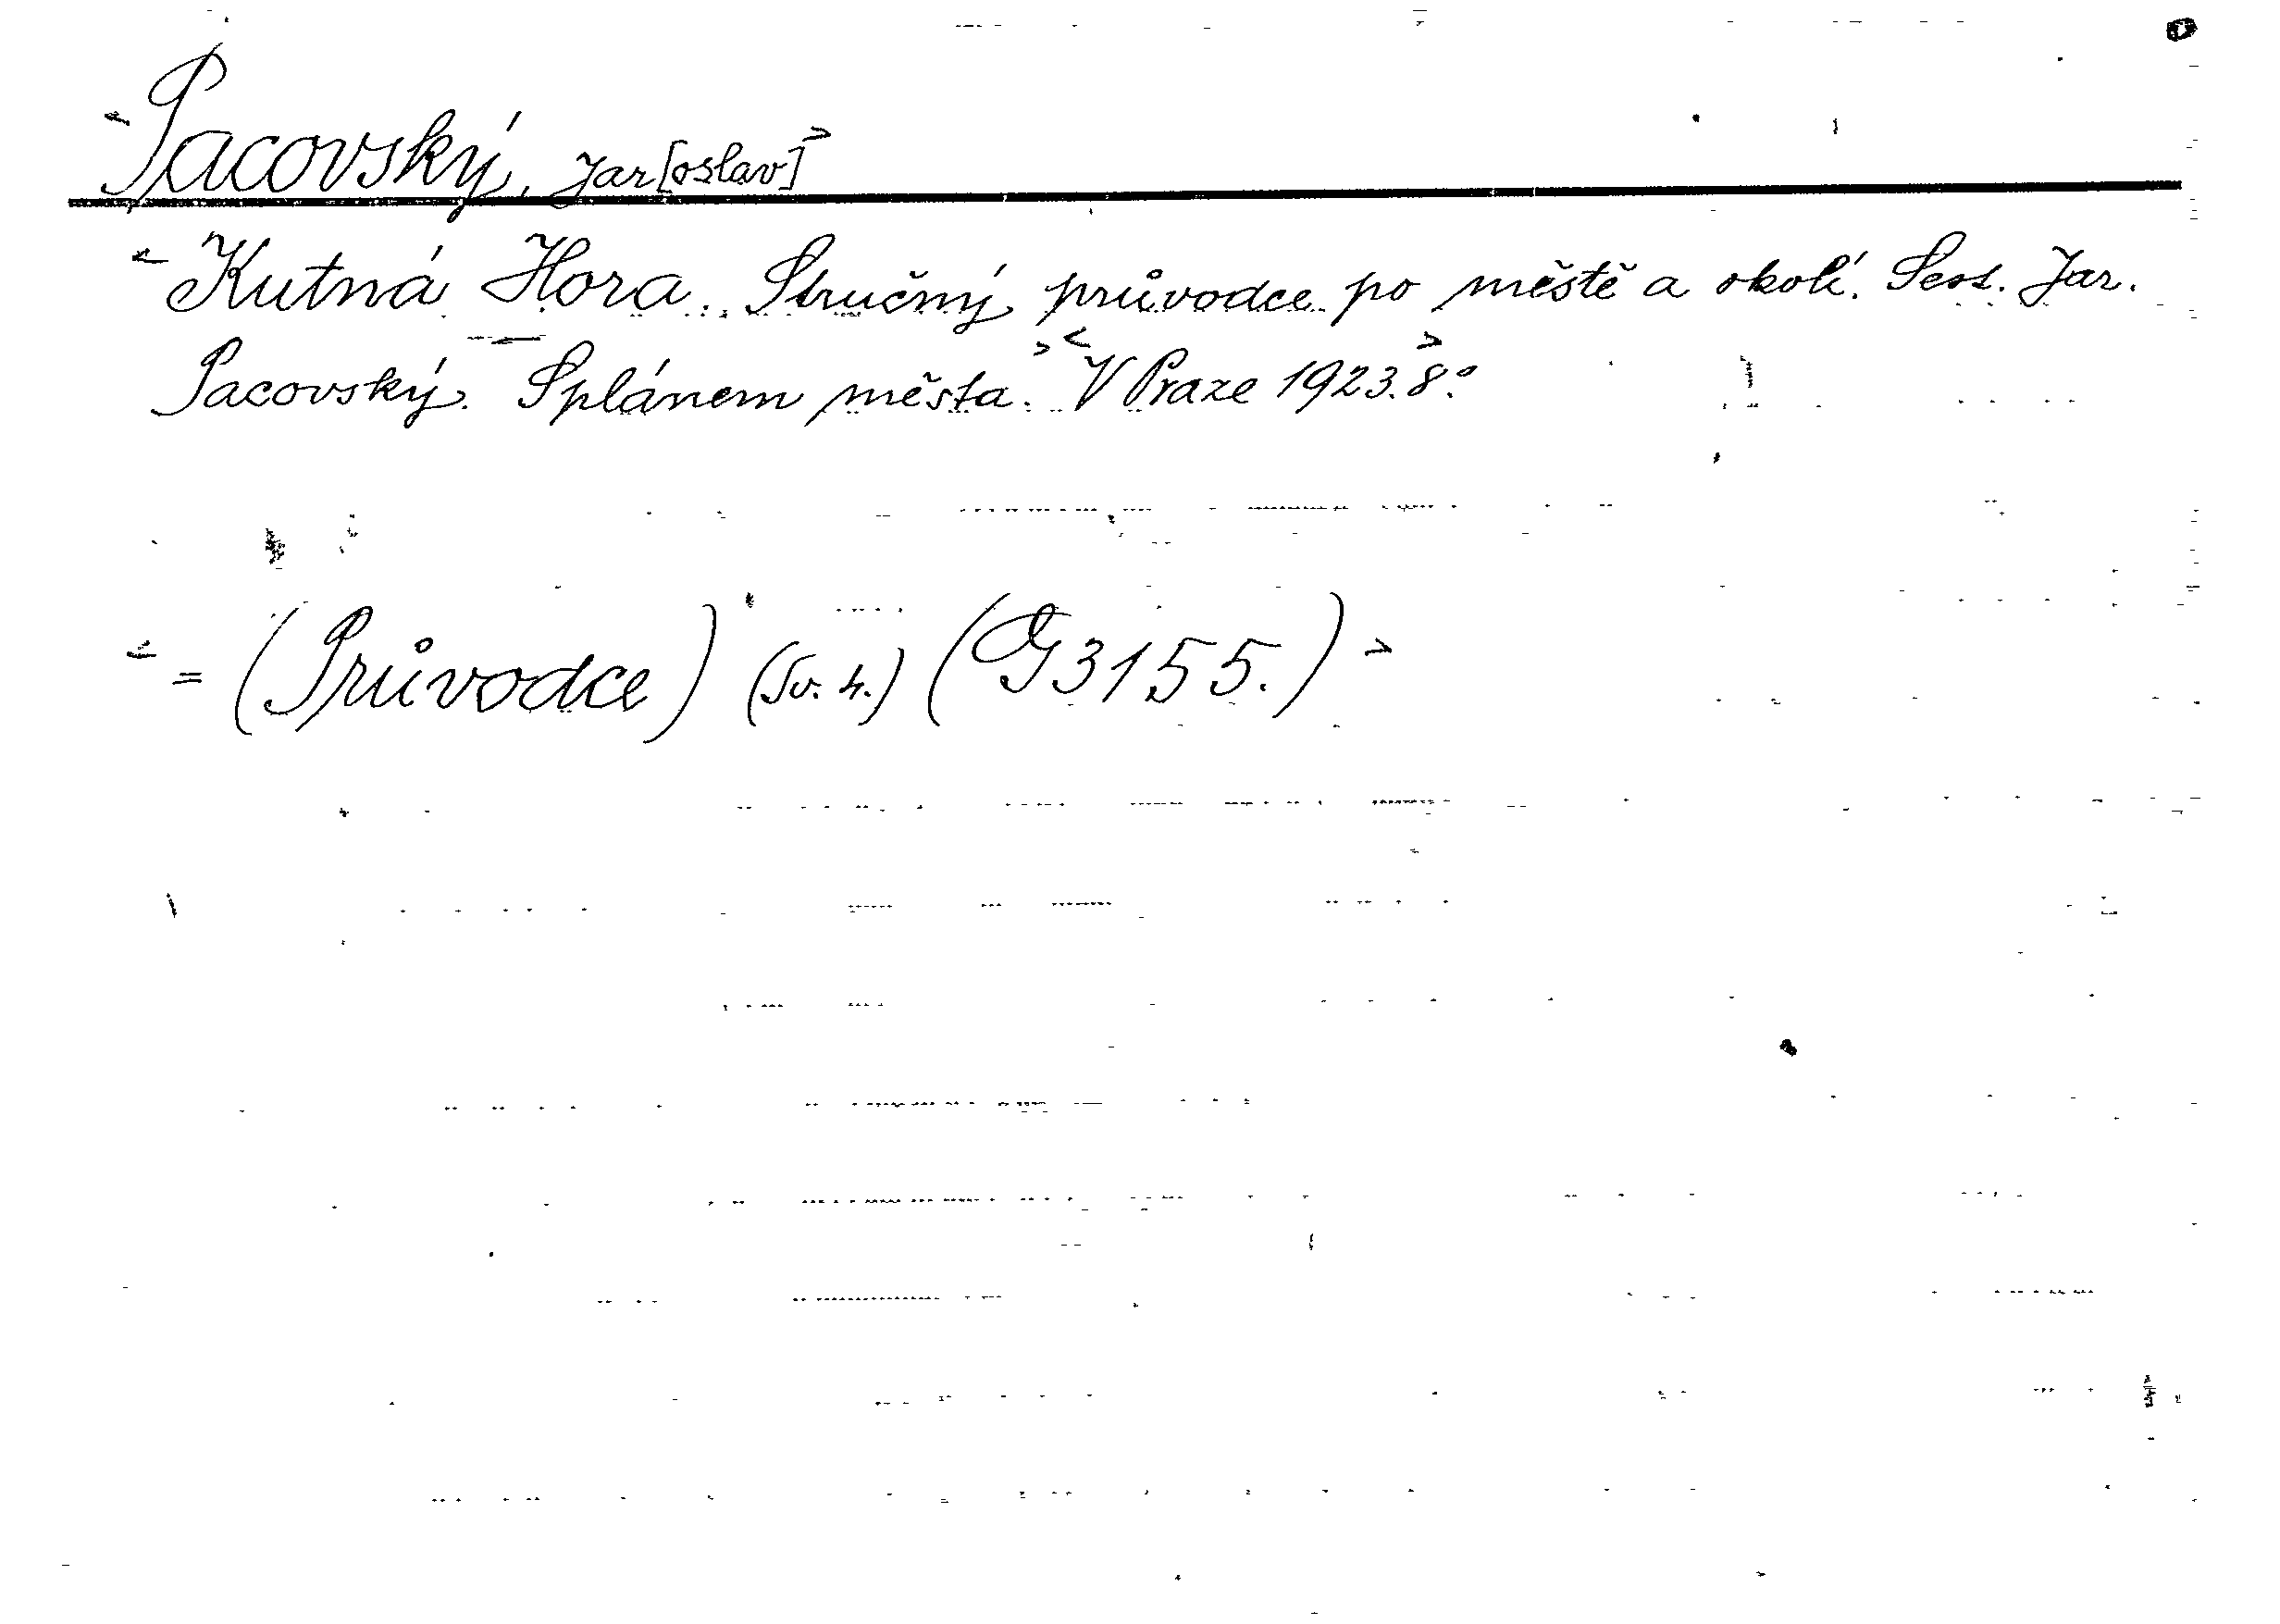 Pacovský, Jar[oslav]
Kutná Hora. Stručný průvodce po městě a okolí. Sest. Jar.
Pacovský. S plánem města. V Praze 1923. 8°.
= (Průvodce) (Sv. 4.) (G 3155.)